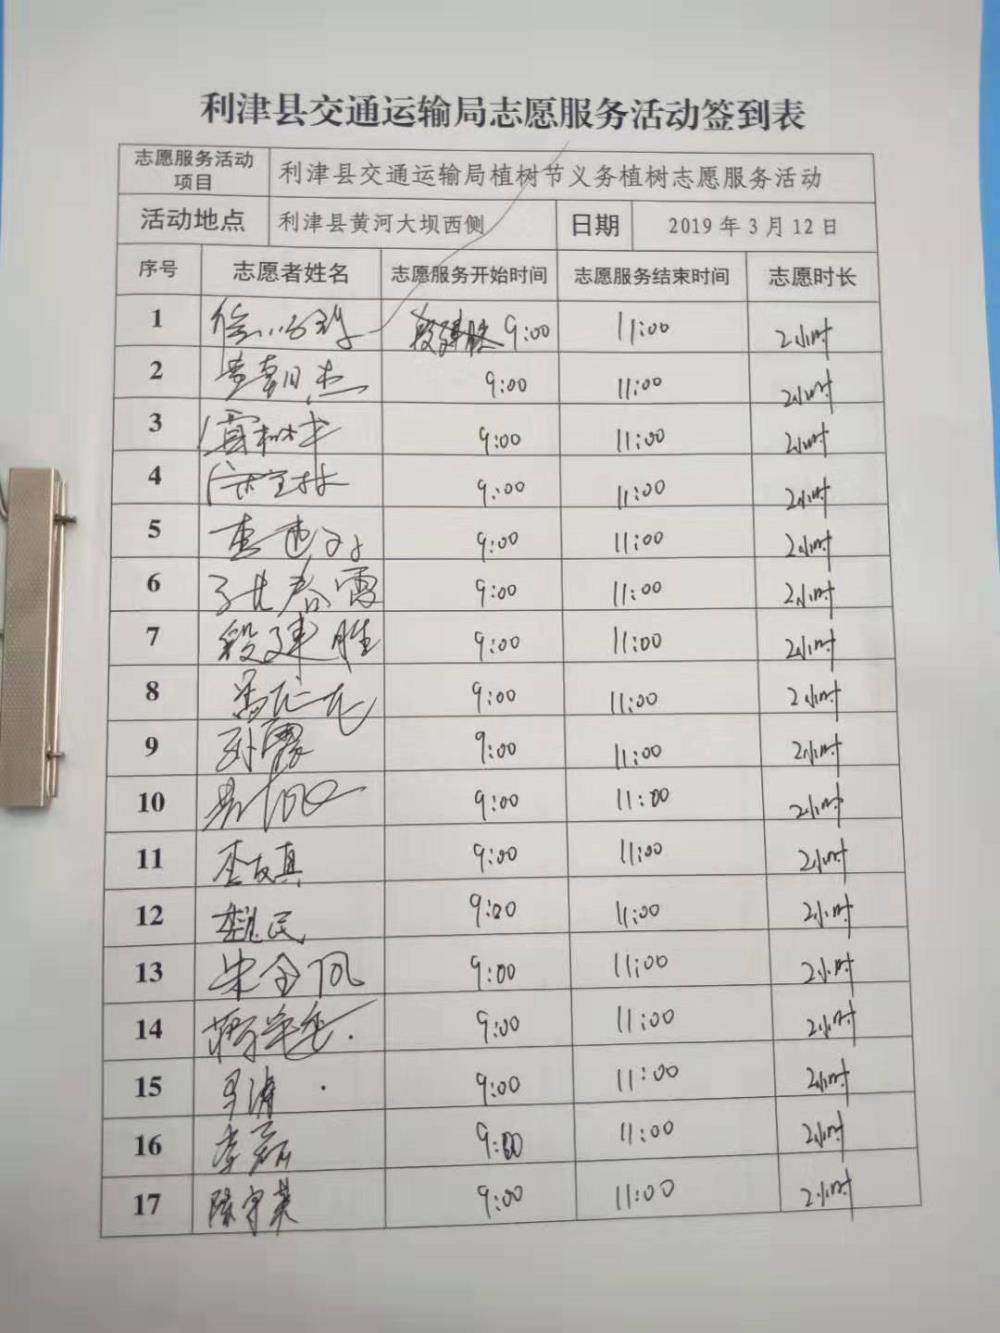 利津县交通运输局志愿服务活动签到表
志愿服务活动项目 利津县交通运输局植树节义务植树志愿服务活动
活动地点 利津县黄河大坝西侧 日期 2019年3月12日
序号 志愿者姓名 志愿服务开始时间 志愿服务结束时间 志愿时长
1 9:00 11:00 2小时
2 9:00 11:00 2小时
3 9:00 11:00 2小时
4 9:00 11:00 2小时
5 9:00 11:00 2小时
6 张春雷 9:00 11:00 2小时
7 段建胜 9:00 11:00 2小时
8 9:00 11:00 2小时
9 9:00 11:00 2小时
10 9:00 11:00 2小时
11 李友真 9:00 11:00 2小时
12 魏民 9:00 11:00 2小时
13 宋全凤 9:00 11:00 2小时
14 9:00 11:00 2小时
15 王涛 9:00 11:00 2小时
16 李磊 9:00 11:00 2小时
17 陈守英 9:00 11:00 2小时